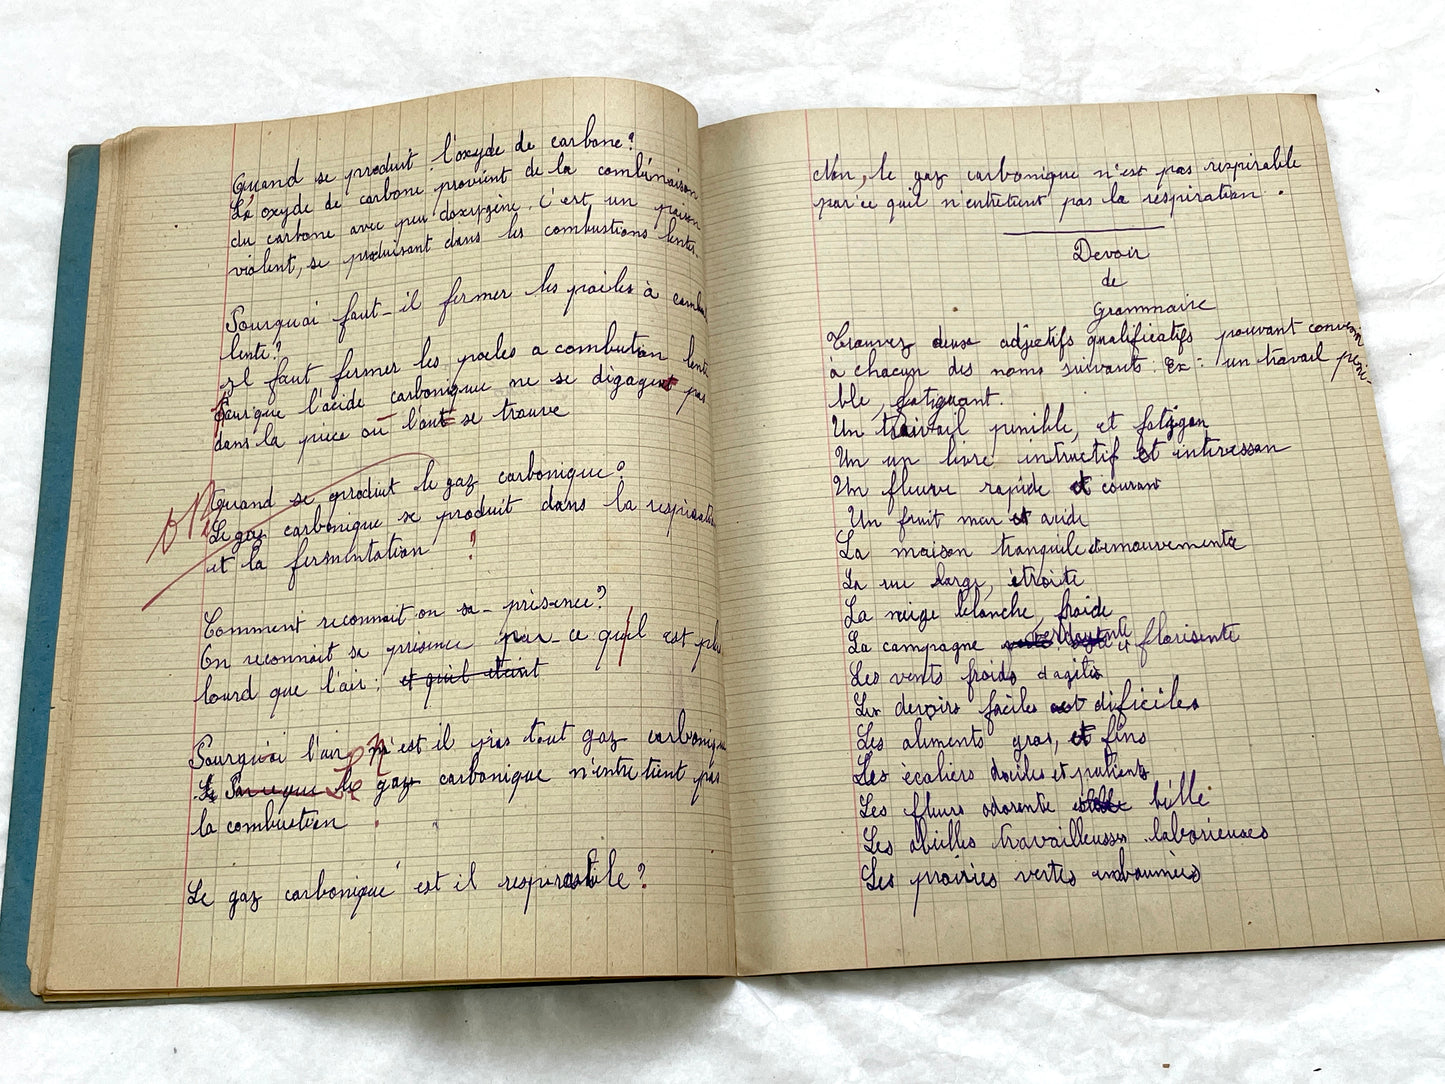 Quand se produit l'oxyde de carbone?
L'oxyde de carbone provient de la combinaison
du carbone avec peu doxygène. C'est un poison
violent, se produisant dans les combustions lentes.
Pourquoi faut-il fermer les poiles à combus
lente?
Il faut fermer les poeles a combution lente
pour que l'acide carbonique ne se dégagent pas
dans la pièce où l'ont se trouve
Quand se produit le gaz carbonique?
Le gaz carbonique se produit dans la respiration
et la fermentation ?
Comment reconnait on sa présence?
On reconnait sa présence par-ce qu'il est plus
lourd que l'air; et quil etaint
Pourquoi l'air n'est il pas tout gaz carbonique
Le Parceque Le gaz carbonique n'entretient pas
la combustion.
Le gaz carbonique est il respirable?
Non, le gaz carbonique n'est pas respirable
par'ce quil n'entretient pas la respiration.
Devoir
de
Grammaire
Trouvez deux adjectifs qualificatifs pouvant convenir
à chacun des noms suivants: Ex: un travail péni-
ble, fatiguant.
Un travail penible, et fatigan
Un un livre instructif et interessan
Un fleuve rapide et courant
Un fruit mur et acide
La maison tranquile et mouvementée
La rue large, étroite
La neige blanche, froide
La campagne verdoyante et florisente
Les vents froids et agités
Les devoirs faciles et dificiles
Les aliments gras, et fins
Les écoliers dociles et patients
Les fleurs odorente bélle
Les abeilles travailleuses laborieuses
Les prairies vertes embaumées